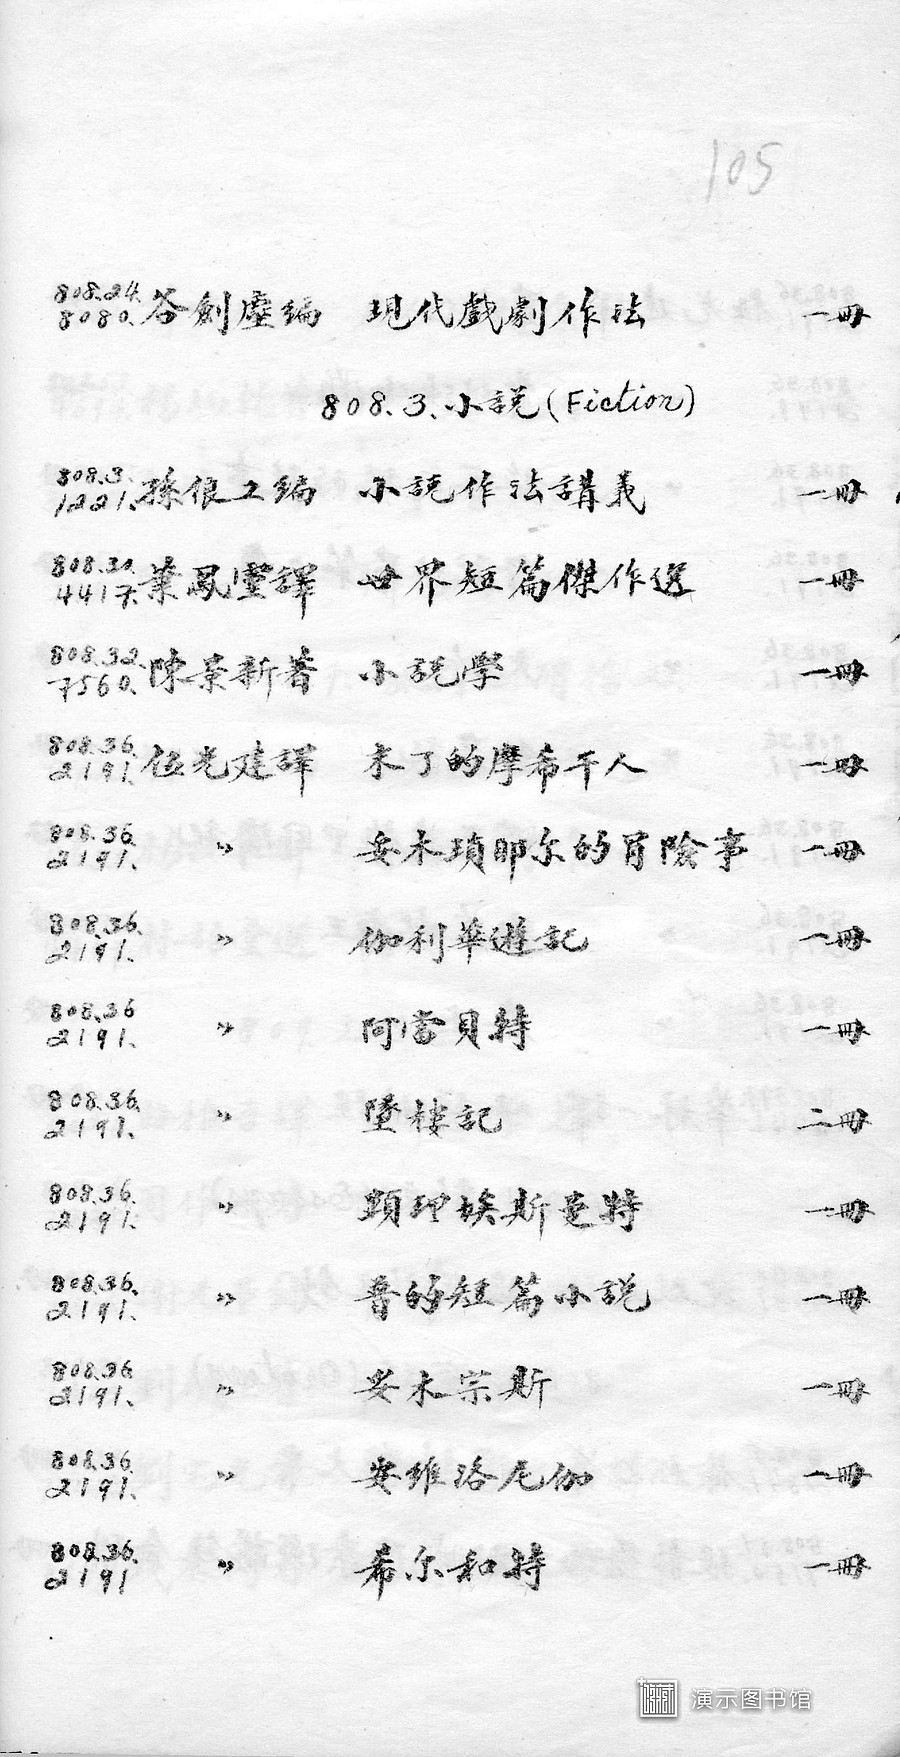 105
808.24. 谷劍塵編 現代戲劇作法 一冊
8080.
808.3. 小說(Fiction)
808.3. 孫俍工編 小說作法講義 一冊
1221.
808.30. 葉鳳靈譯 世界短篇傑作選 一冊
4417.
808.32. 陳景新著 小說學 一冊
7560.
808.36. 伍光建譯 末了的摩希干人 一冊
2191.
808.36. 〃 妥木瑣耶尔的冒險事 一冊
2191.
808.36. 〃 伽利華遊記 一冊
2191.
808.36 〃 阿當貝特 一冊
2191.
808.36. 〃 墜樓記 二冊
2191.
808.36. 〃 顯理埃斯曼特 一冊
2191.
808.36. 〃 普的短篇小說 一冊
2191.
808.36. 〃 妥木宗斯 一冊
2191.
808.36 〃 安維洛尼伽 一冊
2191.
808.36. 〃 希尔和特 一冊
2191
演示图书馆